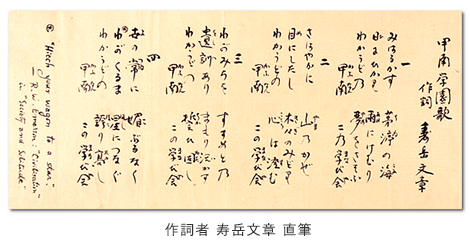 甲南学園歌
作詞 寿岳文章
一
みはるかす 茅渟の海
けむり
わかうどの 夢をさそふ
甲南 この学び舎
二
さはやかに 山乃かぜ
目にしたし 木々のみどり
わかうどの 心は澄む
甲南 この学び舎
三
わがみちを すすめと乃
遺訓あり まもり活かす
わかうどの 誓ひ固し
甲南 この学び舎
四
世の常に 媚ぶるなく
わがくるま 星につなぐ
わかうどの 誇り
甲南 この学び舎
"Hitch your wagon to a star"
— R. W. Emerson: "Civilization"
in "Society and Solitude"
作詞者 寿岳文章 直筆